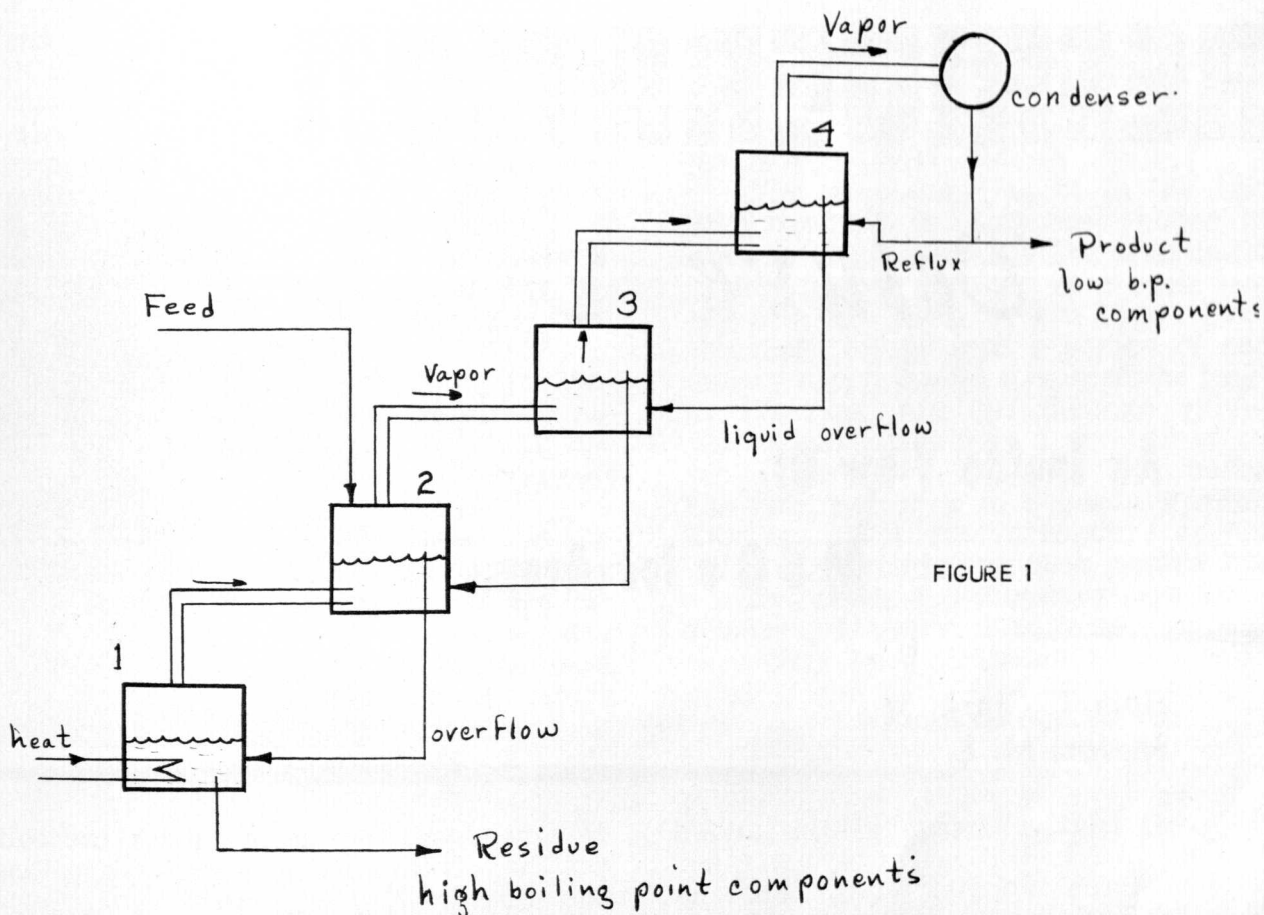 Vapor
condenser
4
Reflux
Product
low b.p.
components
Feed
3
Vapor
liquid overflow
2
FIGURE 1
1
heat
overflow
Residue
high boiling point components